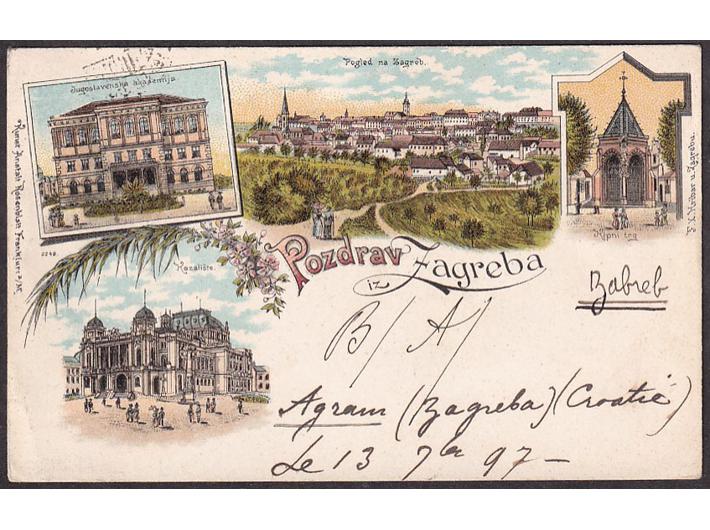 Jugoslavenska akademija.
Pogled na Zagreb.
Kunst Anstalt Rosenblatt Frankfurt a/M.
2248
Kipni trg
Kazalište.
Pozdrav
iz Zagreba
Zabreb
B/A/
Agram (Zagreba) (Croatie)
Le 13 7bre 97-